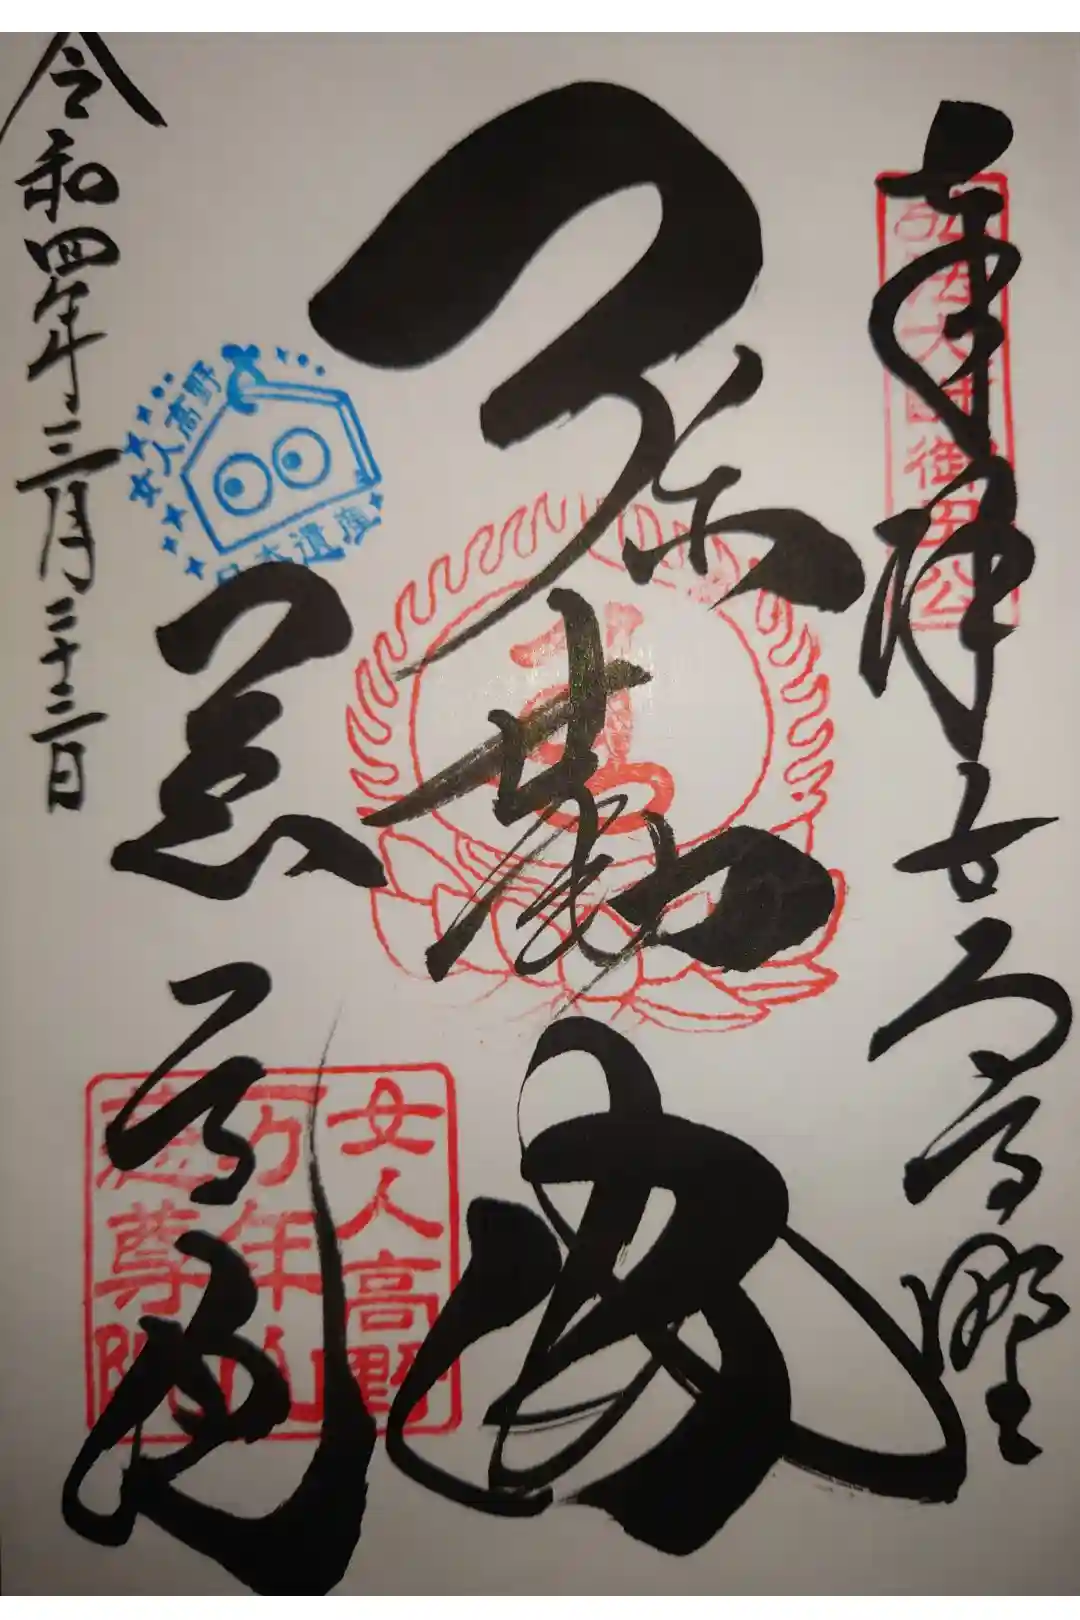 奉拝女人高野
弘法大師御母公
弥勒佛
慈尊院
令和四年三月二十三日
女人高野
日本遺産
女人高野
万年山
慈尊院